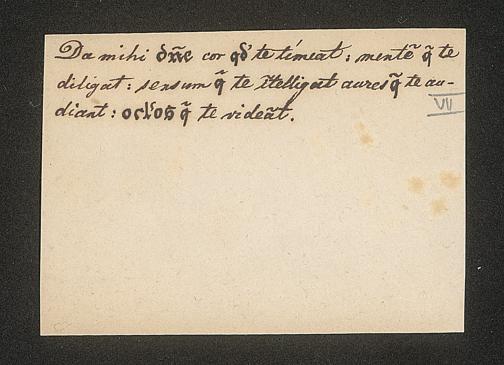 Da mihi dñe cor qd̓ te timeat: mentẽ q̃ te
diligat: sensum q̃ te ĩtelligat aures q̃ te au-
diant: oclo̓s q̃ te videãt.
VII